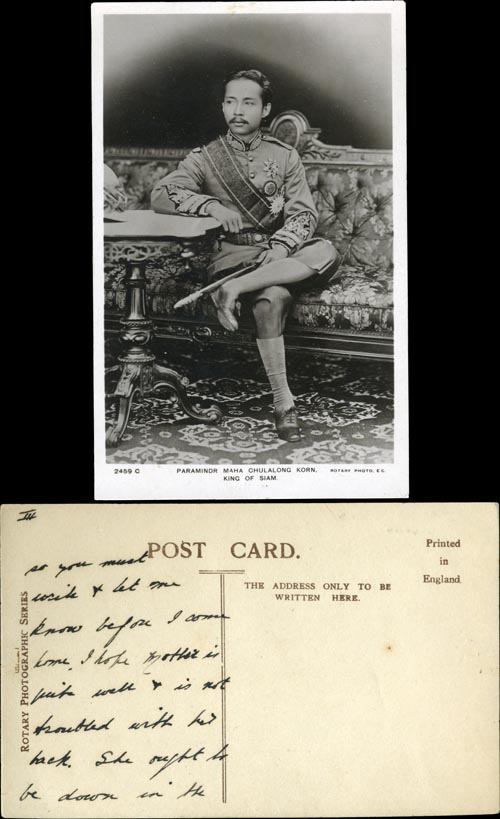 2459 C PARAMINDR MAHA CHULALONG KORN, ROTARY PHOTO, E.C.
KING OF SIAM.
III
POST CARD.
Printed
in
England
THE ADDRESS ONLY TO BE
WRITTEN HERE.
ROTARY PHOTOGRAPHIC SERIES
so you must
write & let me
know before I come
home. I hope Mother is
quite well & is not
troubled with her
back. She ought to
be down in the